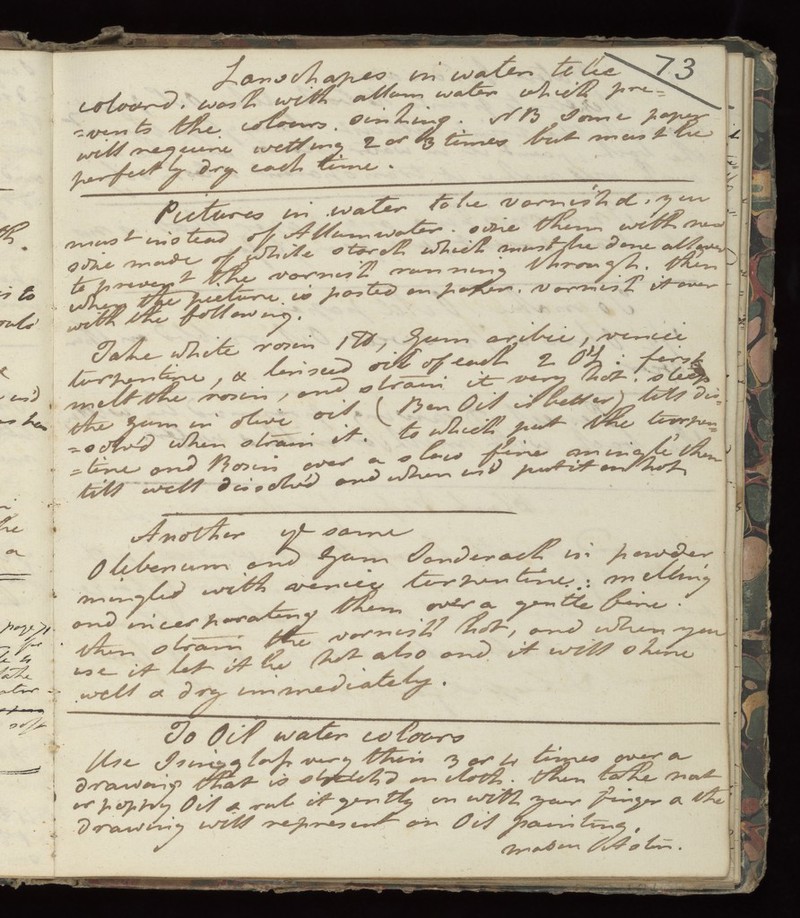 73
Lanschapes in water to be
colourd. wash with allum water which pre=
=vents the colours sinking. NB Some paper
will requere wetting 2 or 3 times but must be
perfectly dry each time.
Pictures in water to be varnish'd, you
must instead of Allum water. sise them with new
sise made of white starch which must be done all over
to prevent the varnish running through. then
when the picture is pasted on paper. varnish it over
with the following.
Take white rosin 1 lb, Gum aribic, venice
turpentine, & linseed oil of each 2 Oz: first
melt the rosin, and strain it very hot. steep
the Gum in olive oil (Ben Oil is better) till dis=
=solv'd when strain it. to which put the turpen=
=tine and Rosin over a slow fire mingle them
till well disolv'd and when us'd put it on hot
Another ye same
Olibenum and Gum Sanderach in powder
mingled with venice turpentine: melting
and incorporating them over a gentle fire.
then strain the varnish hot, and when you
use it let it be hot also and it will shine
well & dry immediately.
To Oil water colours
Use Isingglass very thin 3 or 4 times over a
drawing that is stretch'd on cloth. then take nut
or poppy Oil & rub it gently on with your finger & the
drawing will represent an Oil painting.